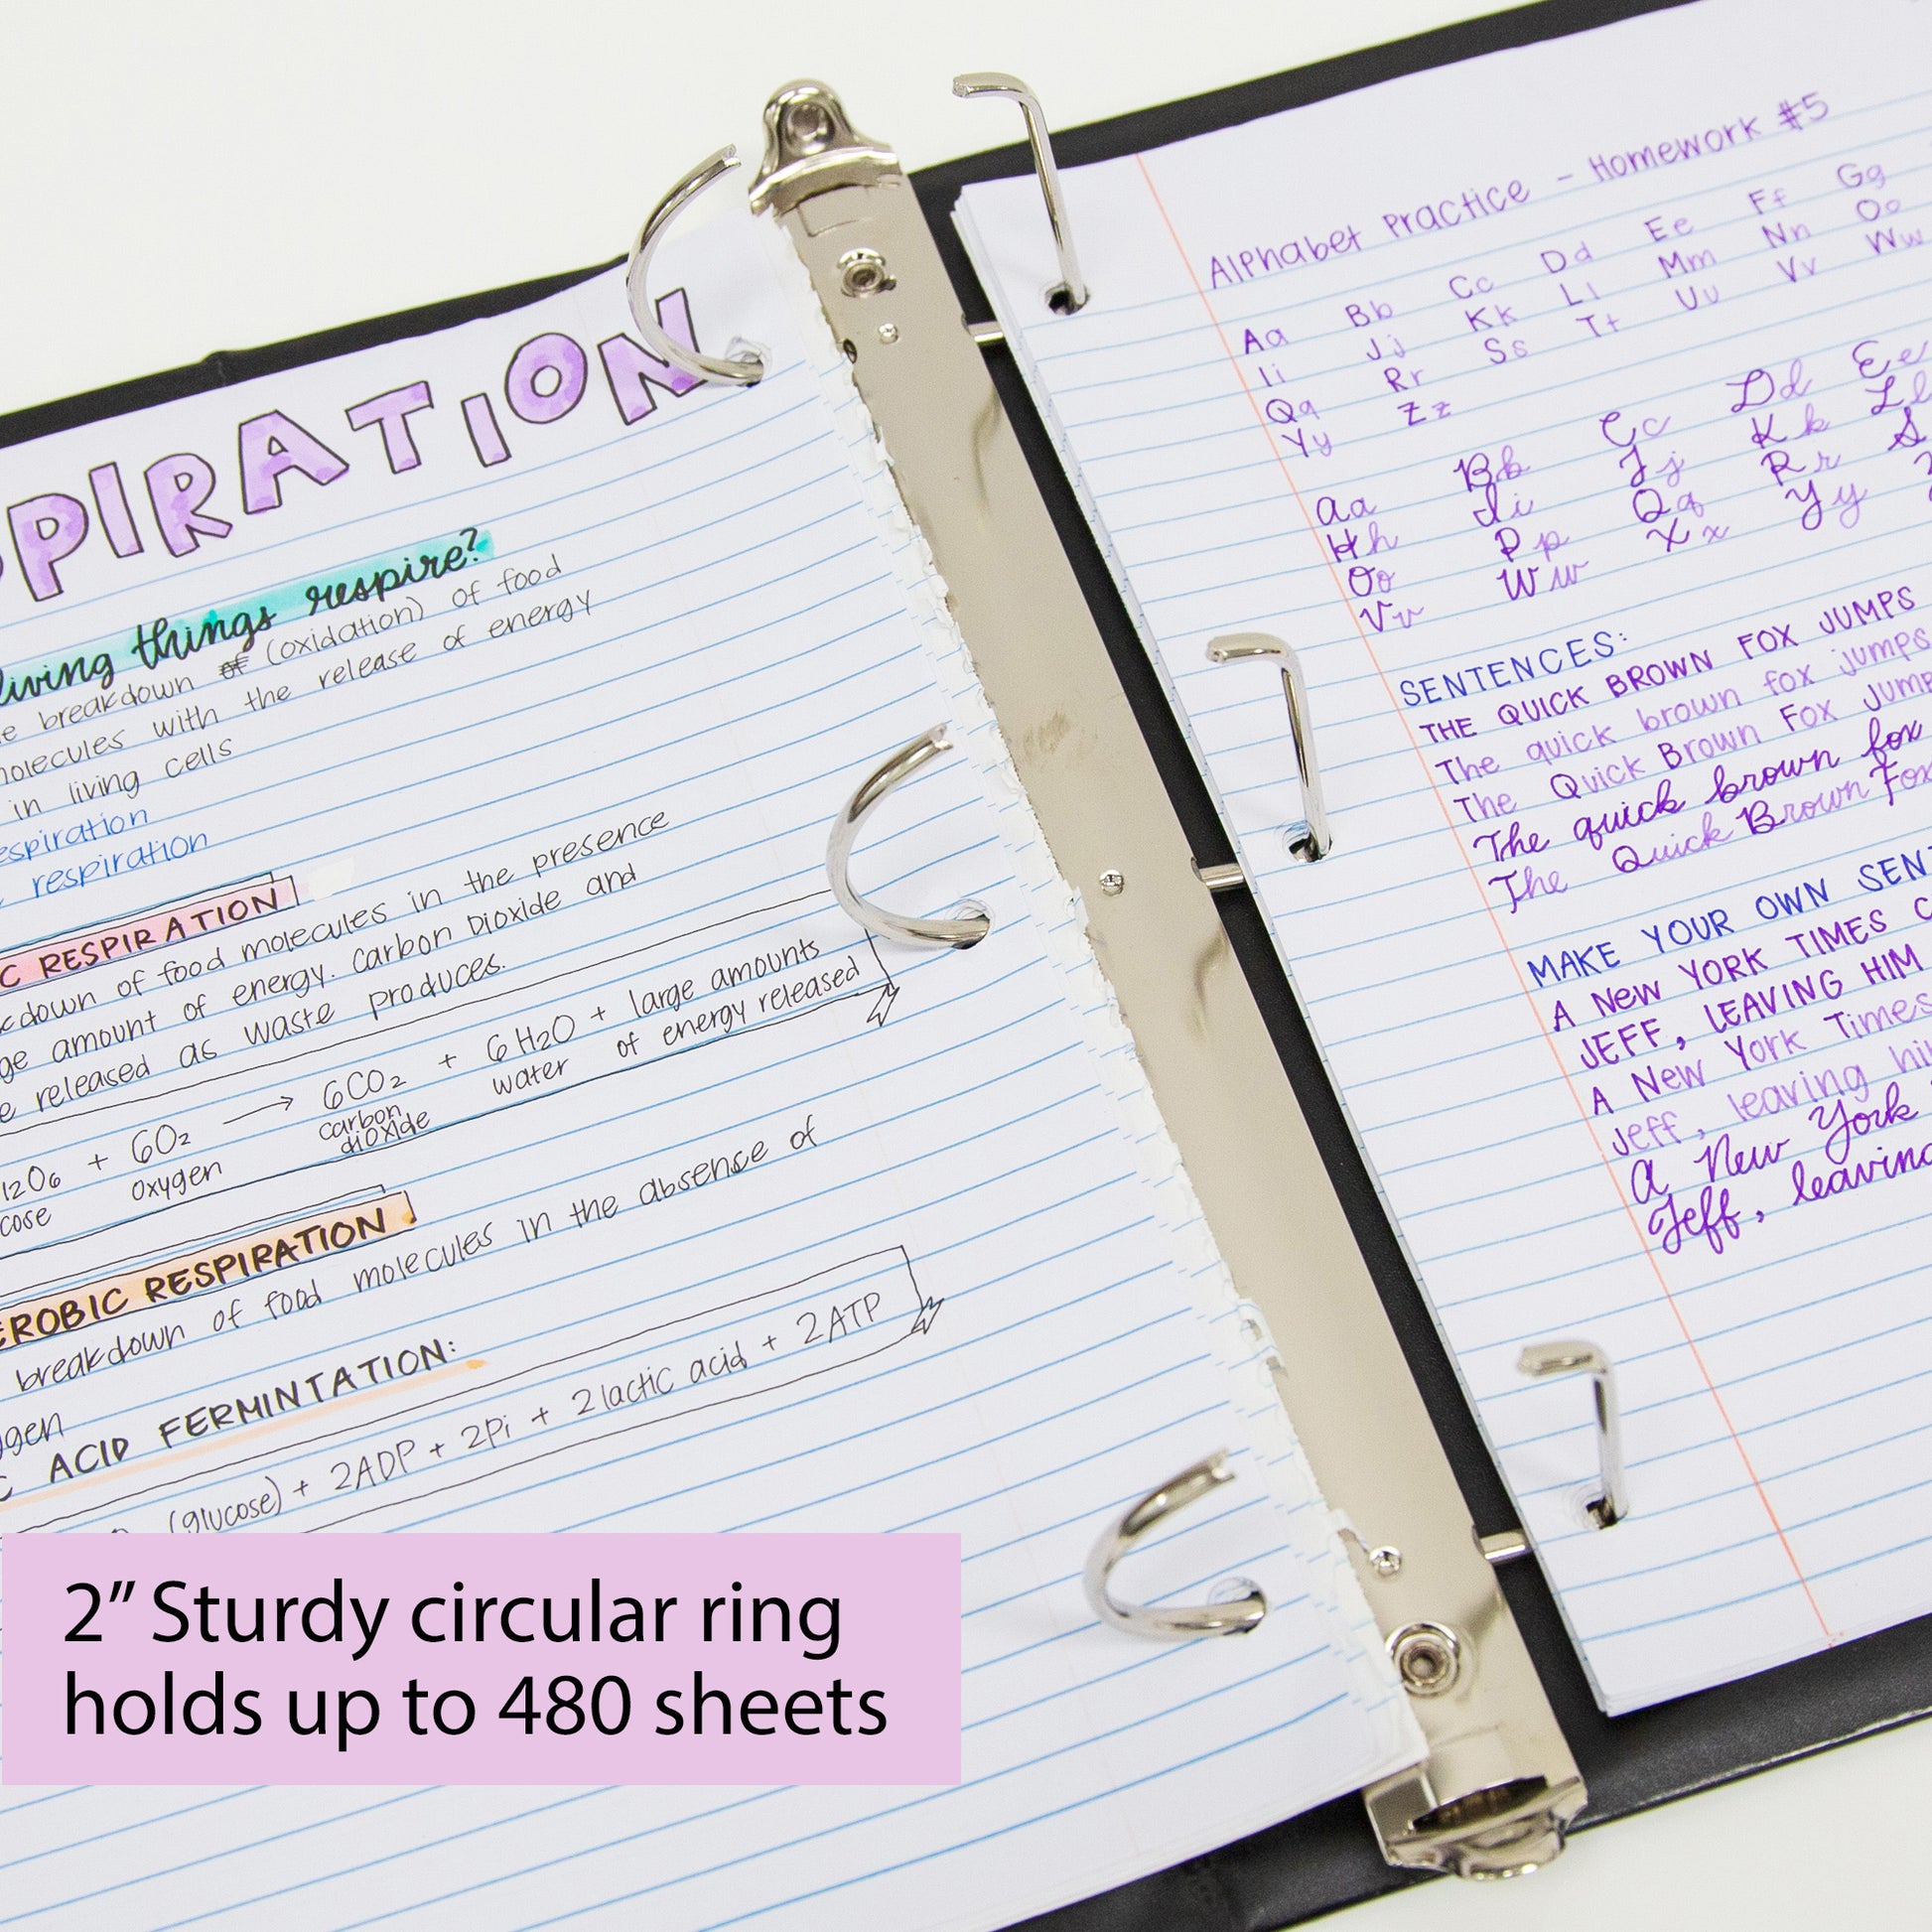 PIRATION
living things respire?
breakdown of (oxidation) of food
molecules with the release of energy
in living cells
respiration
respiration
C RESPIRATION
breakdown of food molecules in the presence
amount of energy. Carbon Dioxide and
released as waste produces.
+ 6O₂ → 6CO₂ + 6H₂O + large amounts
oxygen carbon dioxide water of energy released
EROBIC RESPIRATION
breakdown of food molecules in the absence of
ACID FERMINTATION:
(glucose) + 2ADP + 2Pi + 2lactic acid + 2ATP
2” Sturdy circular ring
holds up to 480 sheets
Alphabet Practice - Homework #5
Aa Bb Cc Dd Ee Ff Gg
Ii Jj Kk Ll Mm Nn Oo
Qq Rr Ss Tt Uu Vv Ww
Yy Zz
Aa Bb Cc Dd Ee
Hh Ii Jj Kk Ll
Oo Pp Qq Rr S
Vv Ww Xx Yy
SENTENCES:
THE QUICK BROWN FOX JUMPS
The quick brown fox jumps
The Quick Brown Fox Jump
The quick brown fox
The Quick Brown Fox
MAKE YOUR OWN SENT
A NEW YORK TIMES C
JEFF, LEAVING HIM
A New York Times
Jeff, leaving hi
A New York
Jeff, leaving